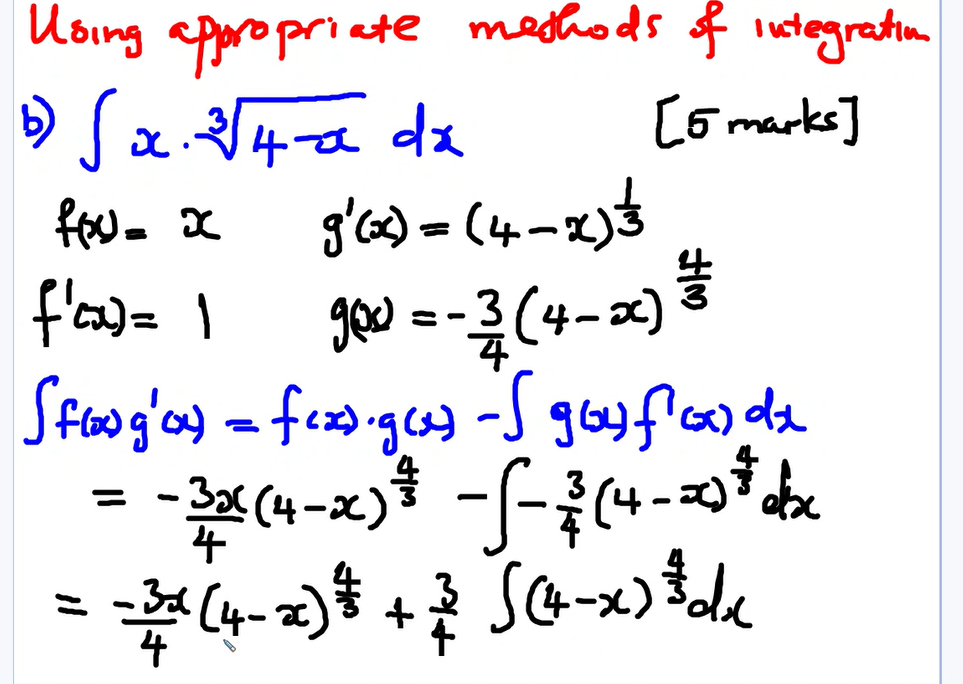 Using appropriate methods of integration
b) ∫ x · ∛(4-x) dx [5 marks]
f(x) = x g'(x) = (4-x)^(1/3)
f'(x) = 1 g(x) = -3/4 (4-x)^(4/3)
∫f(x)g'(x) = f(x)·g(x) - ∫ g(x)f'(x) dx
= -3x/4 (4-x)^(4/3) - ∫ -3/4 (4-x)^(4/3) dx
= -3x/4 (4-x)^(4/3) + 3/4 ∫(4-x)^(4/3) dx